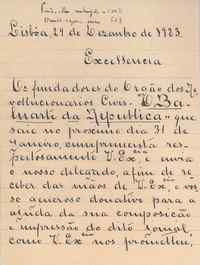 Lisbôa, 29 de Dezembro de 1923.
Excellencia
Os fundadores do Orgão dos Re-
volucionarios Civis - "O Ba-
luarte da Republica" - que
saie no proximo dia 31 de
Janeiro, cumprimenta res-
peitosamente V. Exª. e envia
o nosso delegado, afim de re-
ceber das mãos de V. Exª. o vos-
so generoso donativo para a
ajuda da sua composição
e impressão do dito Jornal,
como V. Exª nos prometteu,